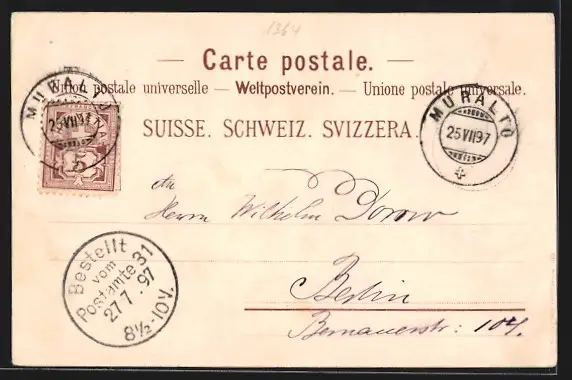 1364
— Carte postale. —
Union postale universelle — Weltpostverein. — Unione postale universale.
SUISSE. SCHWEIZ. SVIZZERA.
MURALTO
25 VII 97
5
MURALTO
25 VII 97
An
Herrn Wilhelm Dorow
Berlin
Bernauerstr: 104.
Bestellt
vom
Postamte 31
27 7. 97
8½-10V.